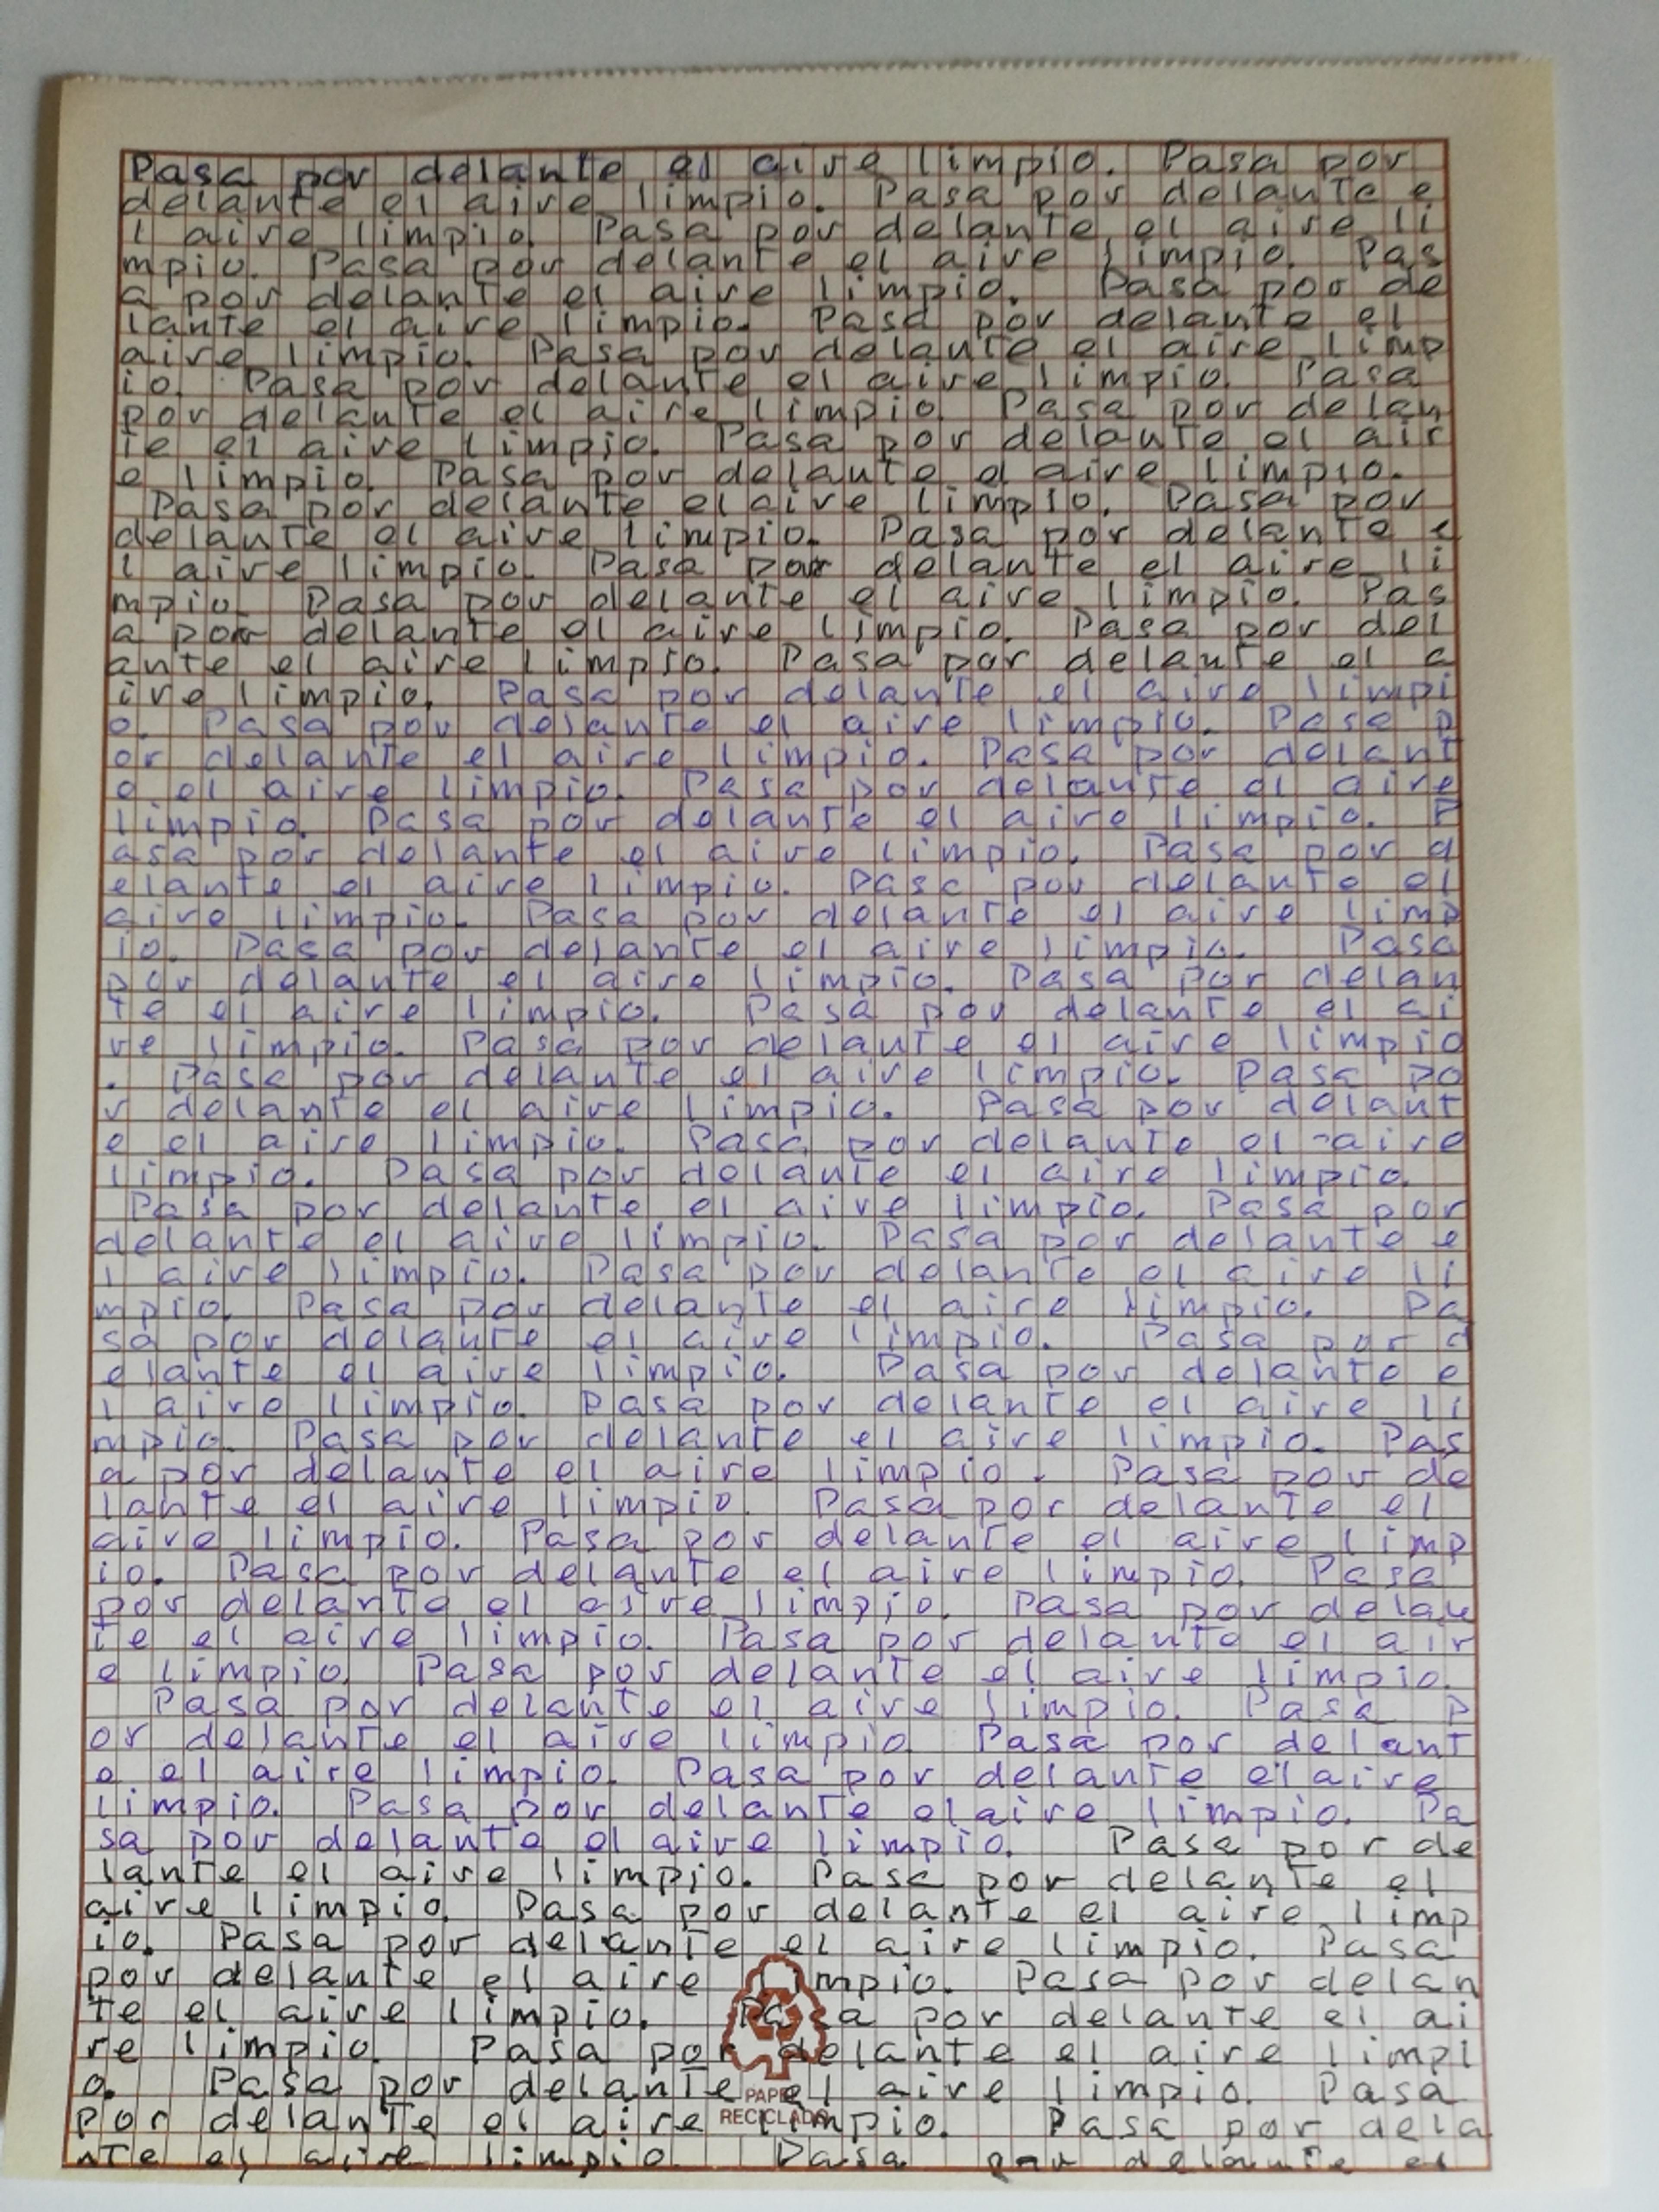 Pasa por delante el aire limpio. Pasa por
delante el aire limpio. Pasa por delante e
l aire limpio. Pasa por delante el aire li
mpio. Pasa por delante el aire limpio. Pas
a por delante el aire limpio. Pasa por de
lante el aire limpio. Pasa por delante el
aire limpio. Pasa por delante el aire limp
io. Pasa por delante el aire limpio. Pasa
por delante el aire limpio. Pasa por delan
te el aire limpio. Pasa por delante el air
e limpio. Pasa por delante el aire limpio.
Pasa por delante el aire limpio. Pasa por
delante el aire limpio. Pasa por delante e
l aire limpio. Pasa por delante el aire li
mpio. Pasa por delante el aire limpio. Pas
a por delante el aire limpio. Pasa por del
ante el aire limpio. Pasa por delante el a
ire limpio. Pasa por delante el aire limpi
o. Pasa por delante el aire limpio. Pasa p
or delante el aire limpio. Pasa por delant
e el aire limpio. Pasa por delante el aire
limpio. Pasa por delante el aire limpio. P
asa por delante el aire limpio. Pasa por d
elante el aire limpio. Pasa por delante el
aire limpio. Pasa por delante el aire limp
io. Pasa por delante el aire limpio. Pasa
por delante el aire limpio. Pasa por delan
te el aire limpio. Pasa por delante el ai
re limpio. Pasa por delante el aire limpio
. Pasa por delante el aire limpio. Pasa po
r delante el aire limpio. Pasa por delant
e el aire limpio. Pasa por delante el aire
limpio. Pasa por delante el aire limpio.
Pasa por delante el aire limpio. Pasa por
delante el aire limpio. Pasa por delante e
l aire limpio. Pasa por delante el aire li
mpio. Pasa por delante el aire limpio. Pa
sa por delante el aire limpio. Pasa por d
elante el aire limpio. Pasa por delante e
l aire limpio. Pasa por delante el aire li
mpio. Pasa por delante el aire limpio. Pas
a por delante el aire limpio. Pasa por de
lante el aire limpio. Pasa por delante el
aire limpio. Pasa por delante el aire limp
io. Pasa por delante el aire limpio. Pasa
por delante el aire limpio. Pasa por delan
te el aire limpio. Pasa por delante el air
e limpio. Pasa por delante el aire limpio.
Pasa por delante el aire limpio. Pasa p
or delante el aire limpio Pasa por delant
e el aire limpio. Pasa por delante el aire
limpio. Pasa por delante el aire limpio. Pa
sa por delante el aire limpio. Pasa por de
lante el aire limpio. Pasa por delante el
aire limpio. Pasa por delante el aire limp
io. Pasa por delante el aire limpio. Pasa
por delante el aire limpio. Pasa por delan
te el aire limpio. Pasa por delante el ai
re limpio. Pasa por delante el aire limpi
o. Pasa por delante el aire limpio. Pasa
por delante el aire limpio. Pasa por dela
nte el aire limpio. Pasa por delante el
PAPEL
RECICLADO